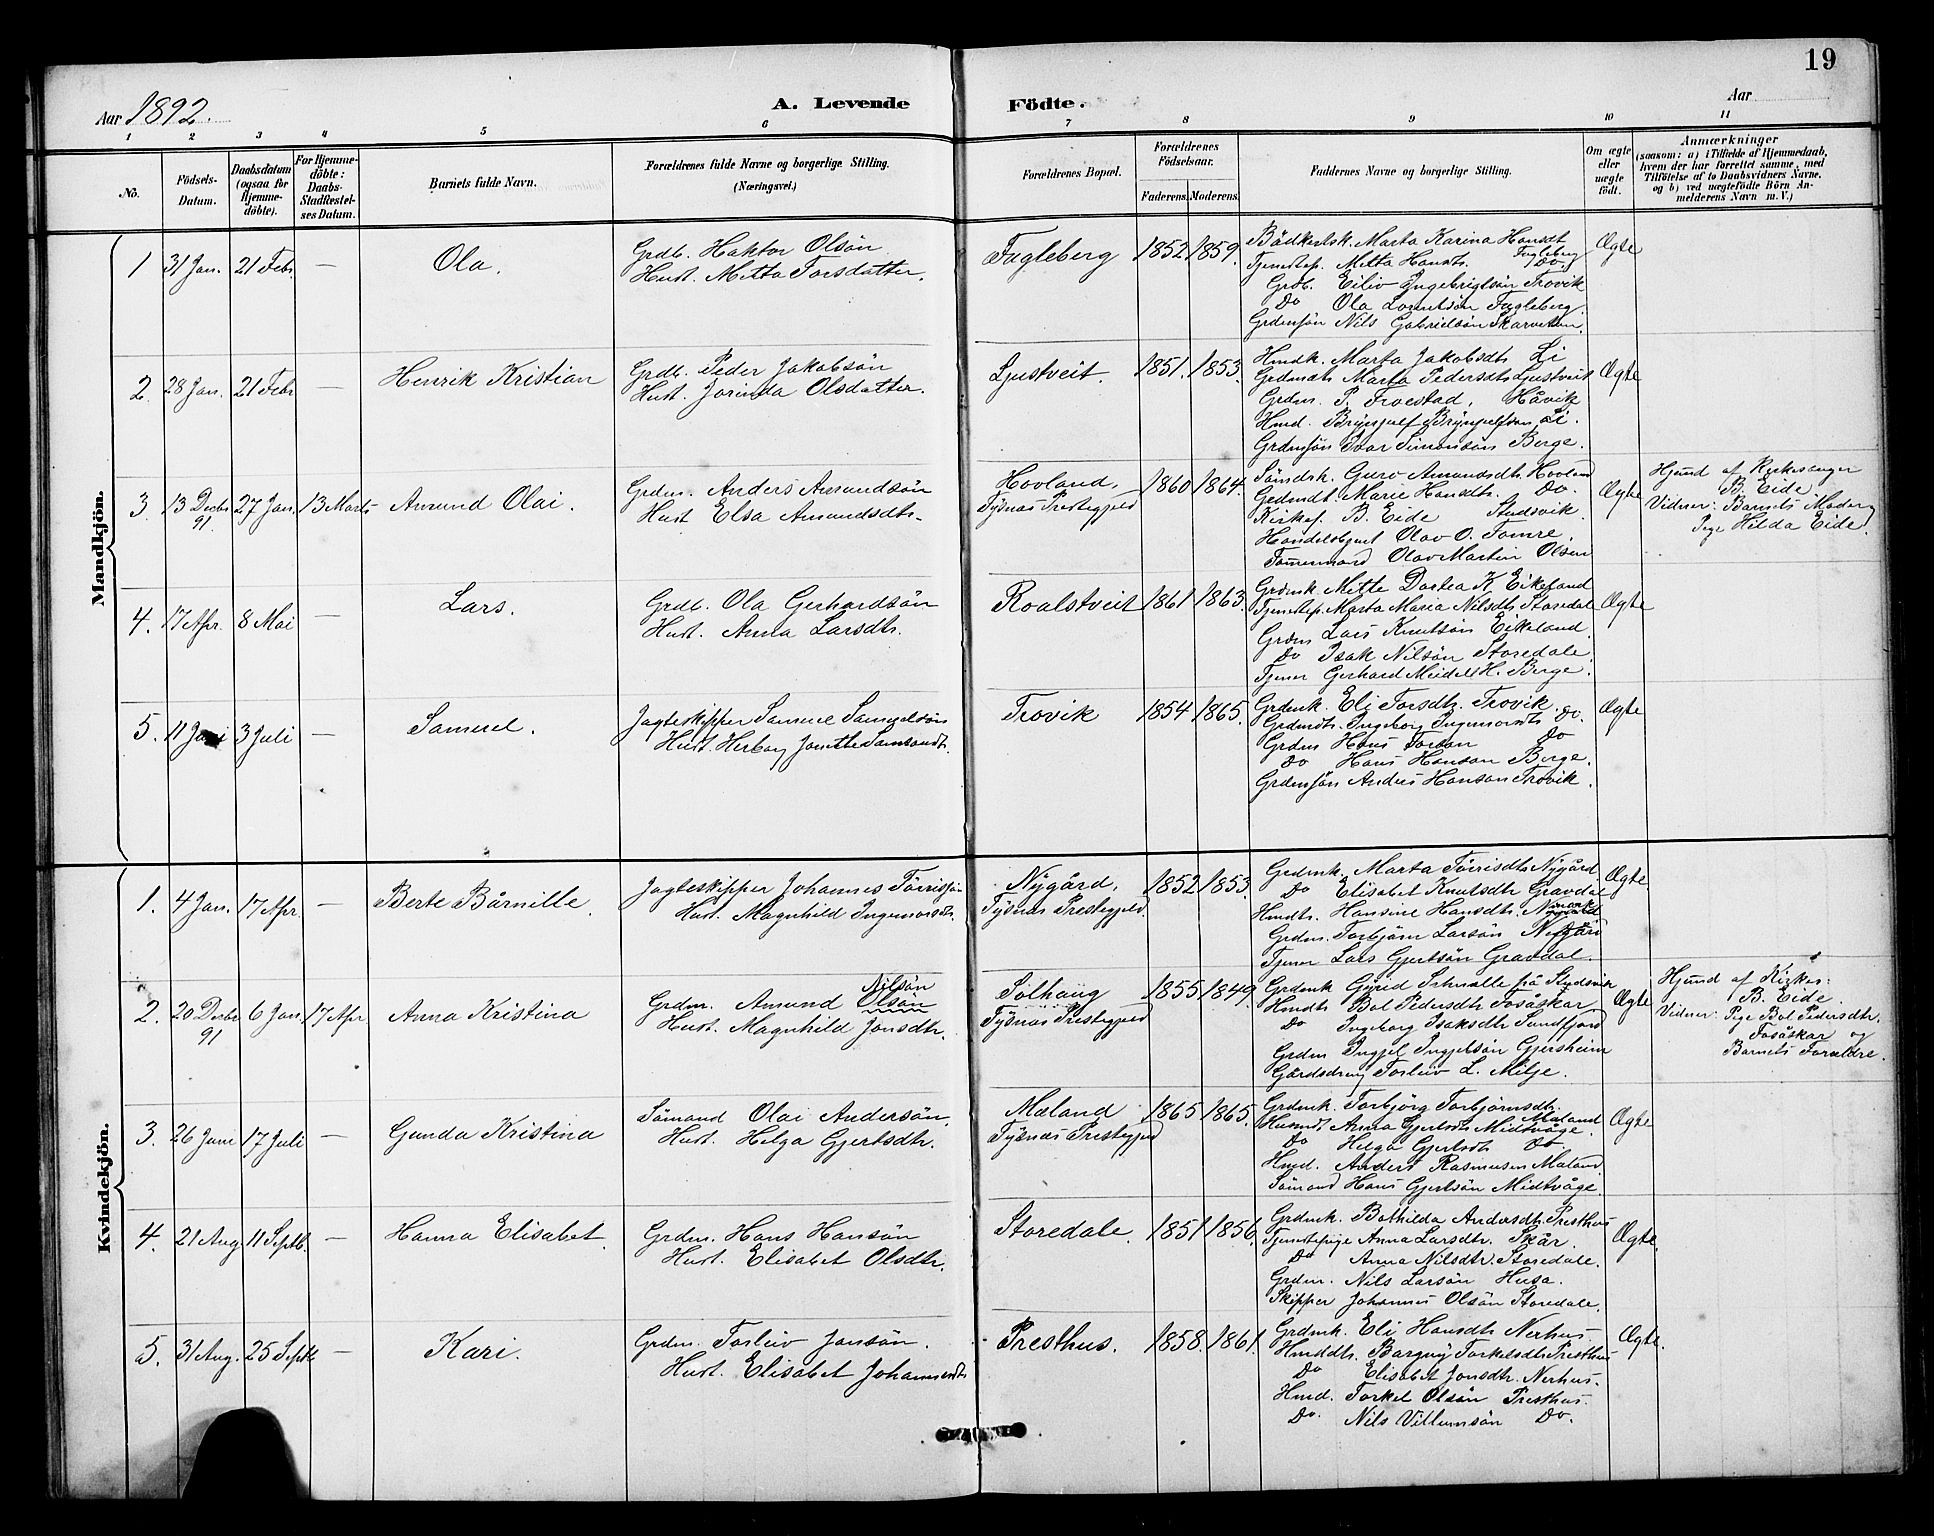 19
Aar 1892.
A. Levende Födte.
Aar
1 2 3 4 5 6 7 8 9 10 11
No.
Födsels-Datum.
Daabsdatum (ogsaa for Hjemme-döbte).
For Hjemme-döbte: Daabs-Stadfæstel-ses Datum.
Barnets fulde Navn.
Forældrenes fulde Navne og borgerlige Stilling.
(Næringsvei.)
Forældrenes Bopæl.
Forældrenes Födselsaar.
Faderens. Moderens.
Faddernes Navne og borgerlige Stilling.
Om ægte eller uægte födt.
Anmærkninger
(saasom: a) i Tilfælde af Hjemmedaab,
hvem der har forrettet samme, med
Tilföielse af to Daabsvidners Navne.
og b) ved uægtefödte Börn An-
melderens Navn m. V.)
Mandkjön.
1 31 Jan. 21 Febr. — Ola.
Grdb. Haktor Olsön
Hust. Mette Torsdatter.
Fugleberg 1852 1859.
Bödkersk. Marta Karina Hansdt Fugleberg
Tjenestep. Mitta Hansdt. Do.
Grdb. Eiliv Ingebrigtsön Trovik
Do Ola Larsön Fugleberg.
Grdmsön Nils Gabrielsön Skarveten.
Ægte
2. 28 Jan. 21 Febr — Henrik Kristian
Grdb. Peder Jakobsön
Hust. Jorinda Olsdatter.
Ljustveit. 1851. 1853.
Hmdk. Marta Jakobsdt. Li
Grdmdt. Marta Pedersdt. Ljustveit
Grdm. P. Troestad, Håvik
Hmd. Brynjulf Brynjulfson Li.
Grdmsön Ivar Simonsön Berge.
Ægte
3. 13 Decbr 91. 27 Jan. 13 Marts Amund Olai.
Grdm. Anders Amundsön
Hust Elsa Amundsdt.
Hovland,
Tysnæs Prestegjeld
1860 1864.
Sömdsk. Guro Amundsdt. Hovland
Grdmdt. Marie Hansdt. Do.
Kirkes. B. Eide Studsvik.
Handelsbjent Olav O. Tomre.
Tömmermand Olav Martin Olsen
Ægte
Hjmd af Kirkesanger
B. Eide
Vidner: Barnets Moder og
Pige Hilda Eide.
4. 17 Apr. 8 Mai — Lars.
Grdb. Ola Gerhardsön
Hust. Anna Larsdt.
Roalstveit 1861 1863.
Grdmk. Mitte Dortea K. Eikeland
Tjenestep. Marta Maria Nilsdt. Storedal
Grdm Lars Knutsön Eikeland.
Do Isak Nilsön Storedale.
Tjener Gerhard Meidell H. Berge.
Ægte
5. 11 Juni 3 Juli — Samuel.
Jagteskipper Samuel Samuelsön
Hust. Herborg Jonette Samsondt.
Trovik 1854 1865.
Grdmk. Eli Torsdt. Trovik.
Grdmdt. Ingeborg Ingemorsdt Do.
Grdm Hans Torson Do
Do Hans Hanson Berge.
Grdmsön Anders Hanson Trovik.
Ægte
Kvindekjön.
1. 4 Jan. 17 Apr. — Berte Bårnille.
Jagteskipper Johannes Törrisön
Hust. Magnhild Ingemorsdt.
Nygård,
Tysnæs Prestegjeld.
1852 1853.
Grdmk. Marta Törrisdt. Nygård.
Do Elisabet Knutsdt. Gravdal
Hmdt. Hansine Hansdt.
Grdm. Torbjörn Larsön Nygård
Tjener Lars Gjertsön Gravdal.
Ægte
2. 20 Decbr 91 6 Jan. 17 Apr Anna Kristina
Nilsön
Grdm. Amund Olsön
Hust. Magnhild Jonsdtr.
Solhaug
Tysnæs Prestegjeld
1855 1849.
Grdmk Gyrid Schnelle på Studsvik
Hmdt. Bol Pedersdt. Fosåskar
Do Ingeborg Isaksdt. Sundfjord
Grdm Ingjel Ingjelsön Gjersheim
Gårdsdreng Torleiv L. Milje.
Ægte
Hjmd af Kirkes.
B. Eide.
Vidner: Pige Bol Pedersdtr.
Fosåskar og
Barnets Forældre.
3. 26 Juni 17 Juli — Gunda Kristina
Sömand Olai Andersön.
Hust. Helga Gjertsdtr.
Mæland
Tysnæs Prestegjeld
1865 1865.
Grdmk. Torbjörg Torbjörnsdt. Mæland
Husmdt Anna Gjertsdt. Midtvåge.
Do Helga Gjertsdt Do.
Hmd. Anders Rasmusen Mæland
Sömand Hans Gjertsön Midtvåge.
Ægte
4. 21 Aug 11 Septb. — Hanna Elisabet.
Grdm. Hans Hansön
Hust. Elisabet Olsdtr.
Storedale. 1851 1856.
Grdmk. Bothilda Andersdt. Presthus
Tjenestepige Anna Larsdtr. Skår.
Do Anna Nilsdtr. Storedale.
Grdm. Nils Larsön Husa.
Skipper Johannes Olsön Storedale.
Ægte.
5. 31 Aug. 25 Septbr — Kari.
Grdm. Torleiv Jonsön.
Hust. Elisabet Johannesdt.
Presthus. 1858. 1861.
Grdmk. Eli Hansdt. Nerhus.
Hmddt. Bargny Torkelsdt. Presthus
Do Elisabet Jonsdtr. Nerhus.
Hmd. Torkel Olsön Presthus.
Do. Nils Villumsön Do.
Ægte.